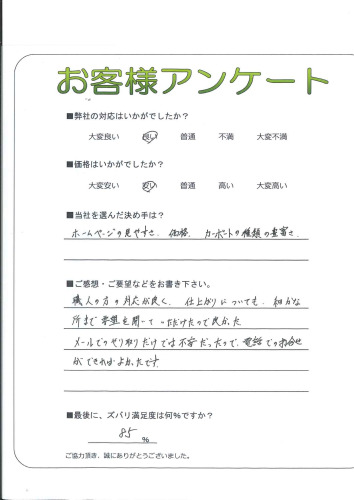 お客様アンケート
■弊社の対応はいかがでしたか？
大変良い 良い 普通 不満 大変不満
■価格はいかがでしたか？
大変安い 安い 普通 高い 大変高い
■当社を選んだ決め手は？
ホームページの見やすさ、価格、カーポートの種類の豊富さ
■ご感想・ご要望などをお書き下さい。
職人の方の対応が良く、仕上がりについても、細かな
所まで希望を聞いていただけたので良かった
メールでのやり取りだけでは不安だったので、電話でのお問合せ
ができればよかったです
■最後に、ズバリ満足度は何%ですか？
85 %
ご協力頂き、誠にありがとうございました。